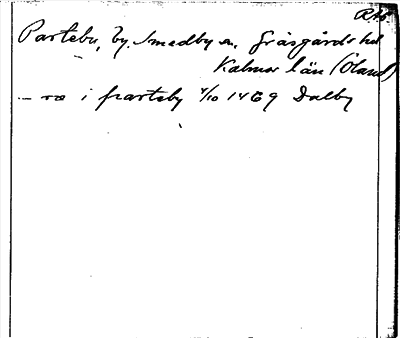 RAp
Parteby, by, Smedby sn, Gräsgårds hd
Kalmar län (Öland)
— ræ i partæby 4/10 1469 Dalby